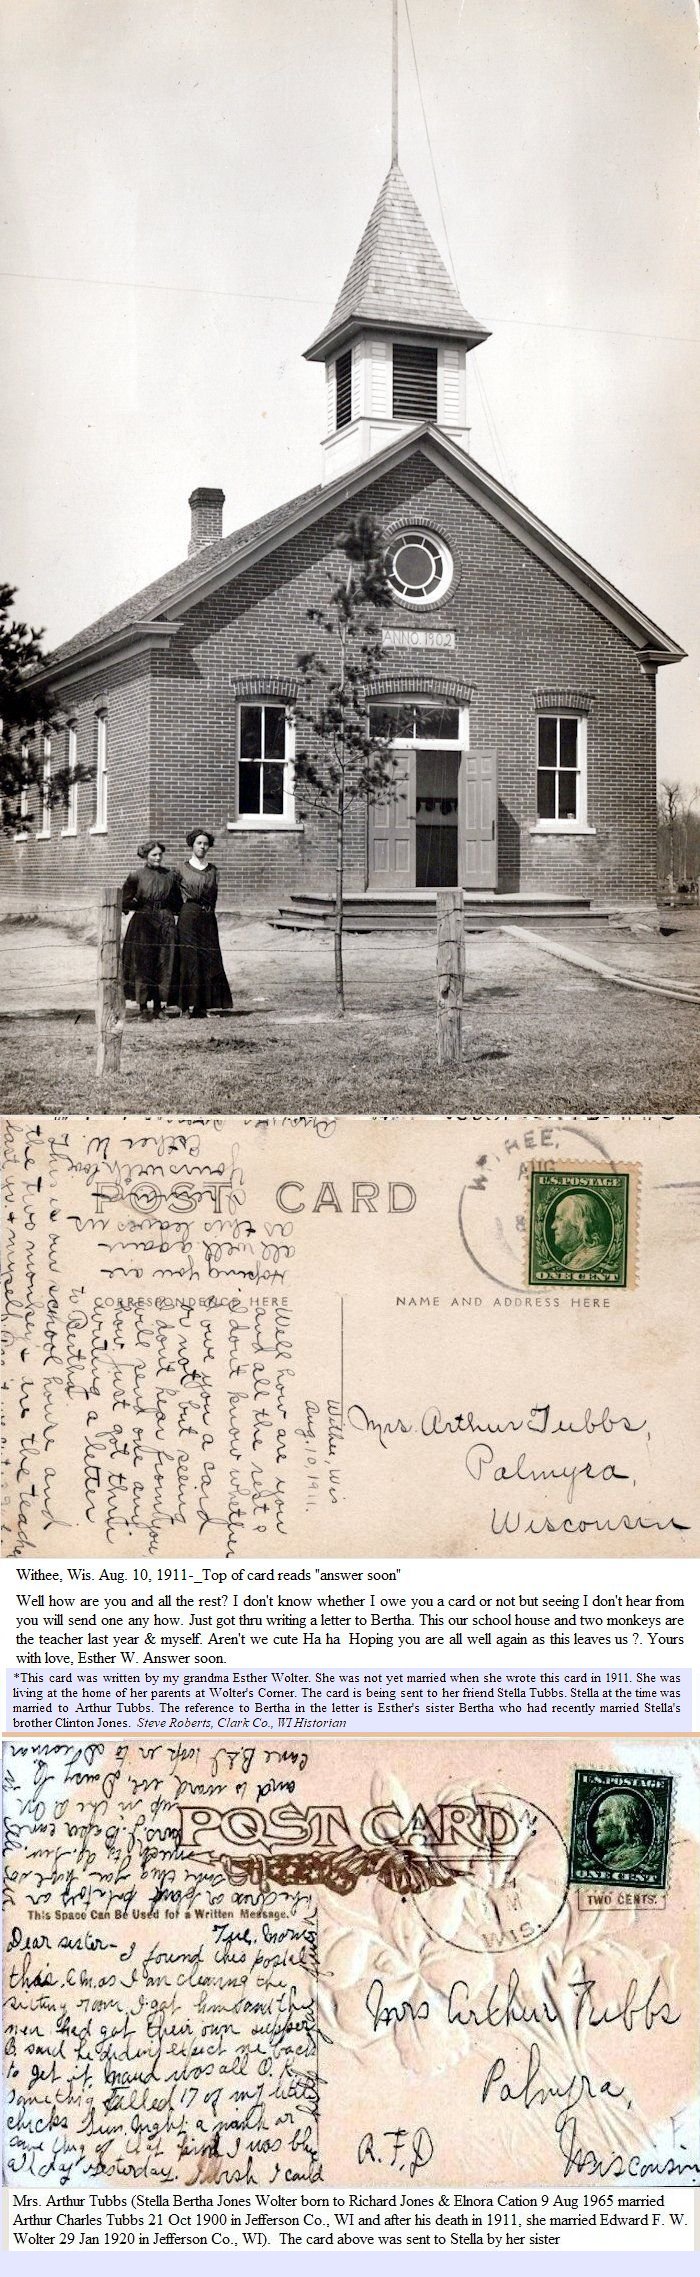 ANNO. 1902
Answer soon
WITHEE,
AUG
U.S. POSTAGE
ONE CENT
POST CARD
CORRESPONDENCE HERE
NAME AND ADDRESS HERE
Withee, Wis
Aug. 10, 1911.
Well how are you
and all the rest?
I don't know whether
I owe you a card
or not but seeing
I don't hear from you
will send one any
how. Just got thru
writing a letter
to Bertha.
This is our school house and
the two monkeys are the teacher
last yr. & myself.
Hoping you are
all well again
as this leaves us
Yours with love
Esther W.
Mrs. Arthur Tubbs,
Palmyra,
Wisconsin
Withee, Wis. Aug. 10, 1911-_Top of card reads "answer soon"
Well how are you and all the rest? I don't know whether I owe you a card or not but seeing I don't hear from
you will send one any how. Just got thru writing a letter to Bertha. This our school house and two monkeys are
the teacher last year & myself. Aren't we cute Ha ha  Hoping you are all well again as this leaves us ?. Yours
with love, Esther W. Answer soon.
*This card was written by my grandma Esther Wolter. She was not yet married when she wrote this card in 1911. She was
living at the home of her parents at Wolter's Corner. The card is being sent to her friend Stella Tubbs. Stella at the time was
married to Arthur Tubbs. The reference to Bertha in the letter is Esther's sister Bertha who had recently married Stella's
brother Clinton Jones. Steve Roberts, Clark Co., WI Historian
POST CARD
U.S. POSTAGE
ONE CENT
TWO CENTS.
WIS.
This Space Can Be Used for a Written Message.
Tue. Morn
Dear sister-
I found this postal
this A.m. as I am cleaning the
sitting room. I got home and the
men had got their own supper
B. said he didn't expect me back
to get it. Maud was all O.K.
Something killed 17 of my little
chicks Sun. night a mink or
some thing of that kind I was blue
all day yesterday. I wish I could
Mrs Arthur Tubbs
Palmyra,
R.F.D
Wisconsin
Mrs. Arthur Tubbs (Stella Bertha Jones Wolter born to Richard Jones & Elnora Cation 9 Aug 1965 married
Arthur Charles Tubbs 21 Oct 1900 in Jefferson Co., WI and after his death in 1911, she married Edward F. W.
Wolter 29 Jan 1920 in Jefferson Co., WI).  The card above was sent to Stella by her sister